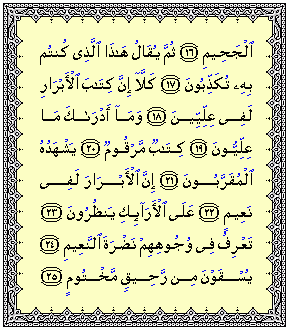 ٱلْجَحِيمِ ١٦ ثُمَّ يُقَالُ هَٰذَا ٱلَّذِى كُنتُم
بِهِۦ تُكَذِّبُونَ ١٧ كَلَّآ إِنَّ كِتَٰبَ ٱلْأَبْرَارِ
لَفِى عِلِّيِّينَ ١٨ وَمَآ أَدْرَىٰكَ مَا
عِلِّيُّونَ ١٩ كِتَٰبٌ مَّرْقُومٌ ٢٠ يَشْهَدُهُ
ٱلْمُقَرَّبُونَ ٢١ إِنَّ ٱلْأَبْرَارَ لَفِى
نَعِيمٍ ٢٢ عَلَى ٱلْأَرَآئِكِ يَنظُرُونَ ٢٣
تَعْرِفُ فِى وُجُوهِهِمْ نَضْرَةَ ٱلنَّعِيمِ ٢٤
يُسْقَوْنَ مِن رَّحِيقٍ مَّخْتُومٍ ٢٥